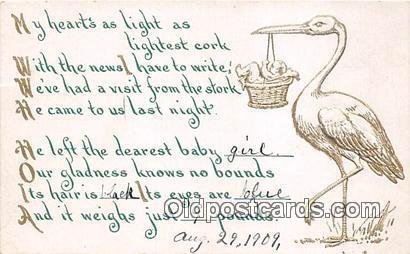 My heart's as light as
lightest cork
With the news I have to write;
We've had a visit from the stork
He came to us last night.
He left the dearest baby girl.
Our gladness knows no bounds
Its hair is black Its eyes are blue
And it weighs just pounds.
Oldpostcards.com
Aug. 29, 1909,